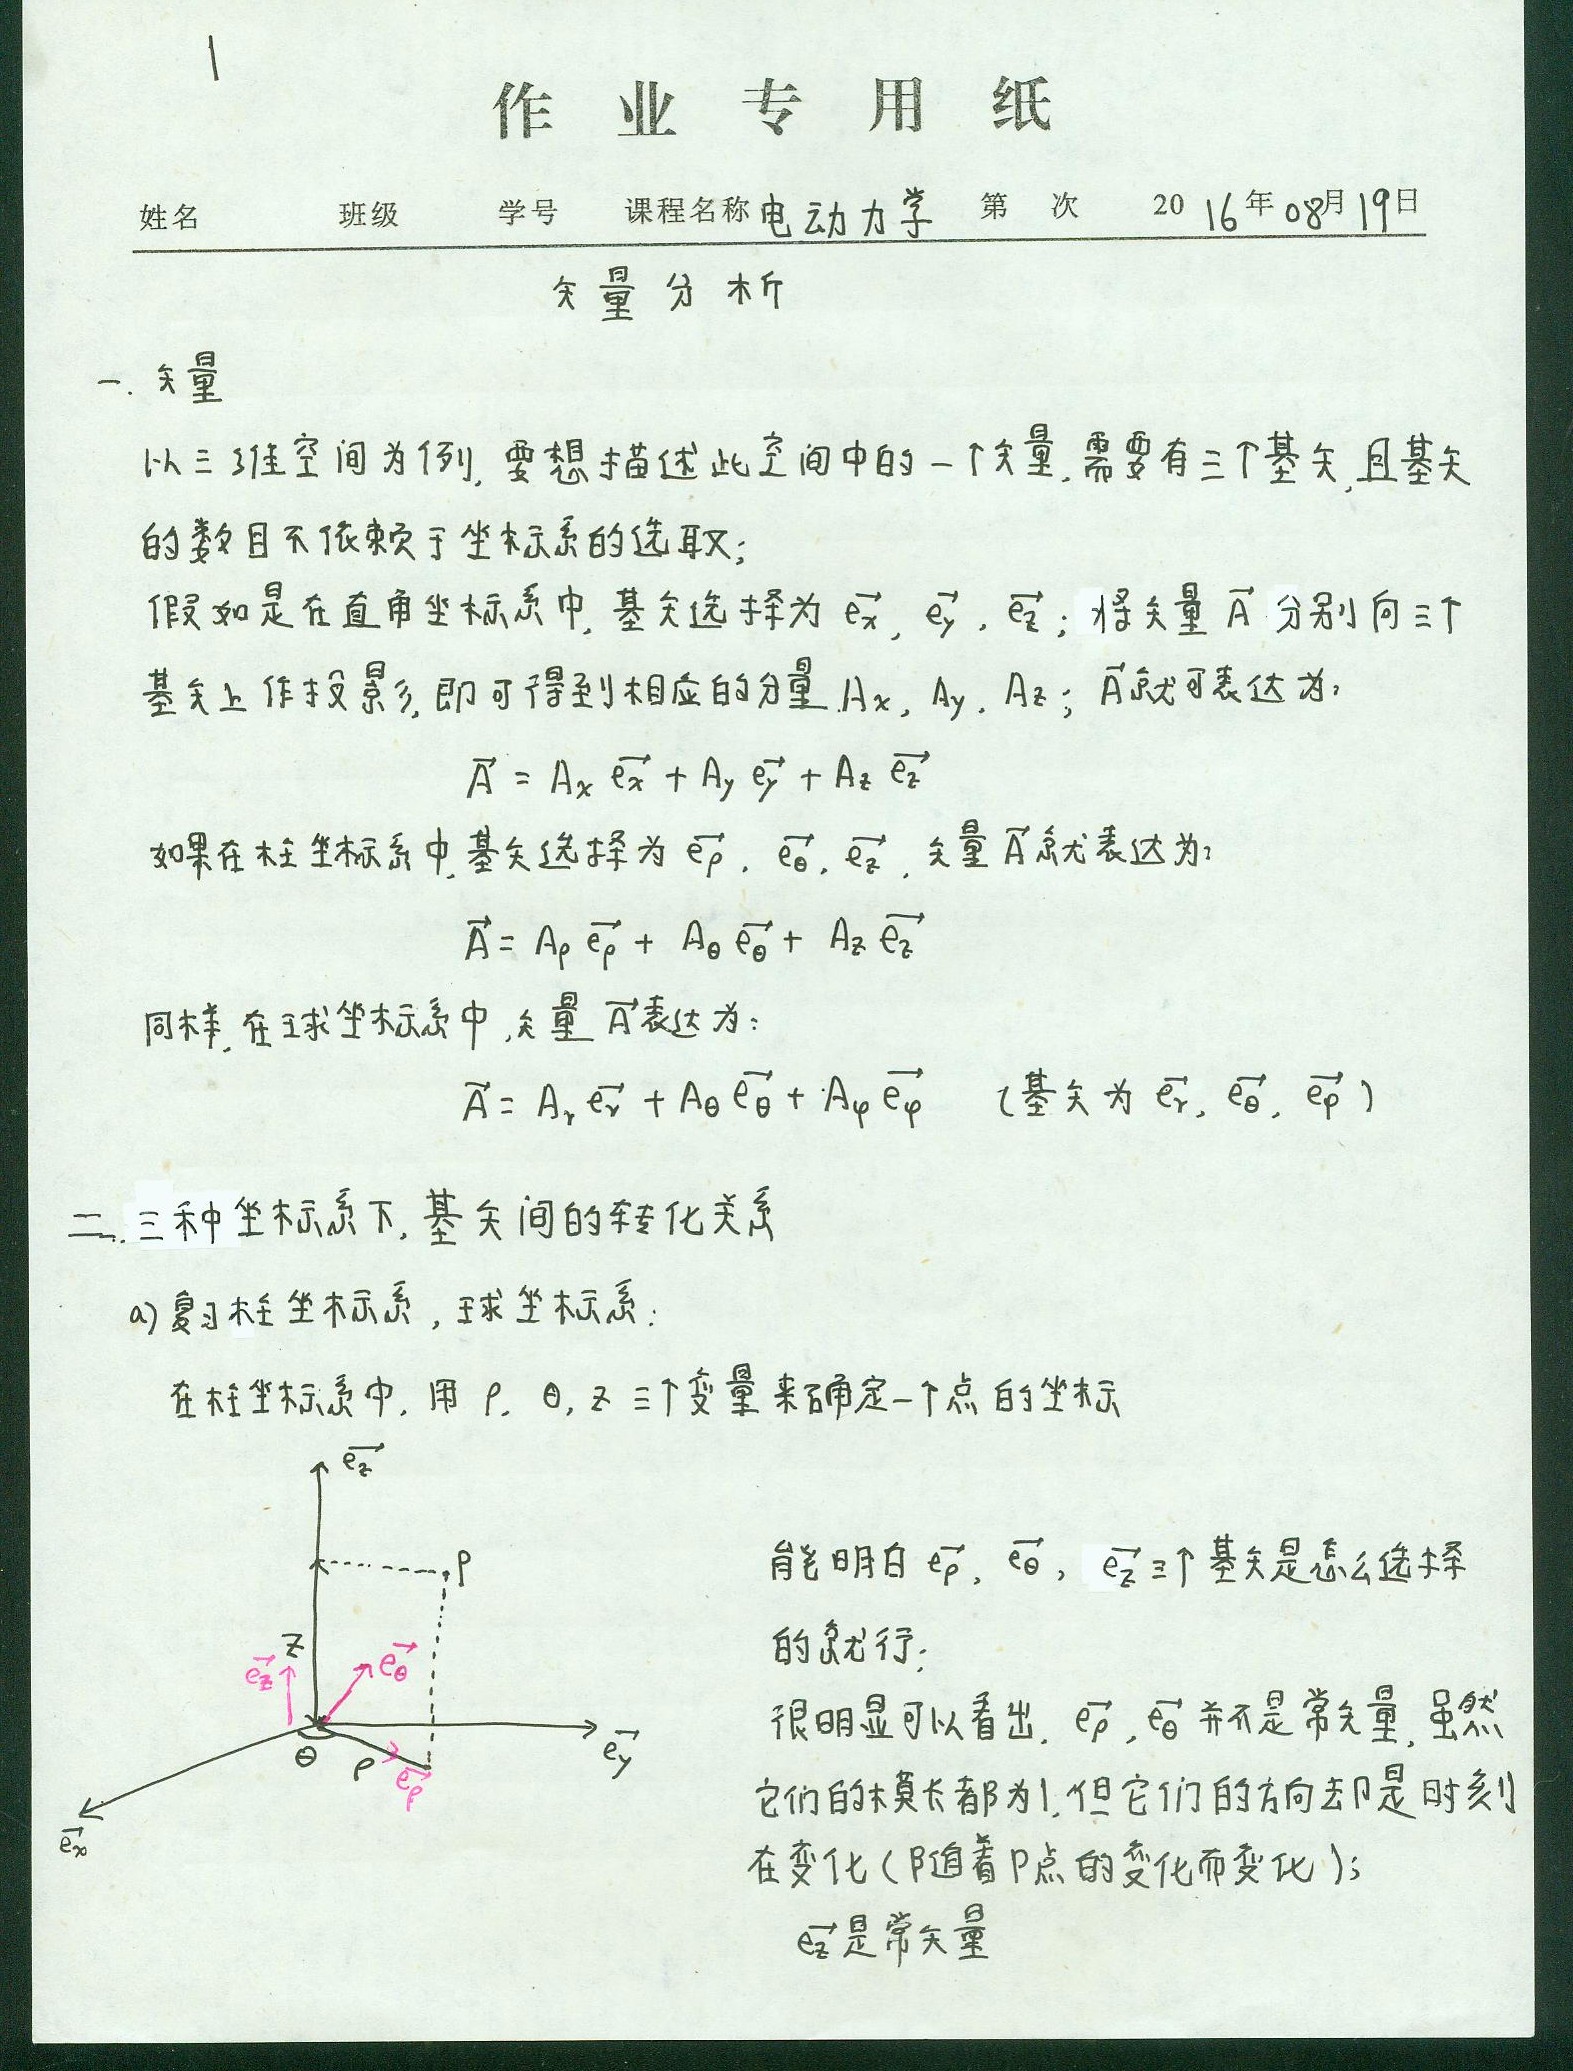 1
作业专用纸
姓名 班级 学号 课程名称 电动力学 第 次 2016年08月19日
矢量分析
一. 矢量
以三维空间为例, 要想描述此空间中的一个矢量, 需要有三个基矢, 且基矢
的数目不依赖于坐标系的选取;
假如是在直角坐标系中, 基矢选择为 e⃗x, e⃗y, e⃗z; 将矢量 A⃗ 分别向三个
基矢上作投影, 即可得到相应的分量 Ax, Ay, Az; A⃗ 就可表达为:
A⃗ = Ax e⃗x + Ay e⃗y + Az e⃗z
如果在柱坐标系中, 基矢选择为 e⃗ρ, e⃗θ, e⃗z, 矢量 A⃗ 就表达为:
A⃗ = Aρ e⃗ρ + Aθ e⃗θ + Az e⃗z
同样, 在球坐标系中, 矢量 A⃗ 表达为:
A⃗ = Ar e⃗r + Aθ e⃗θ + Aφ e⃗φ (基矢为 e⃗r, e⃗θ, e⃗φ)
二. 三种坐标系下, 基矢间的转化关系
a) 复习柱坐标系, 球坐标系:
在柱坐标系中, 用 ρ, θ, z 三个变量来确定一个点的坐标
e⃗z
P
z
e⃗z
e⃗θ
e⃗y
θ
ρ
e⃗ρ
e⃗x
能明白 e⃗ρ, e⃗θ, e⃗z 三个基矢是怎么选择
的就行;
很明显可以看出, e⃗ρ, e⃗θ 并不是常矢量, 虽然
它们的模长都为1, 但它们的方向却是时刻
在变化 (随着P点的变化而变化);
e⃗z 是常矢量